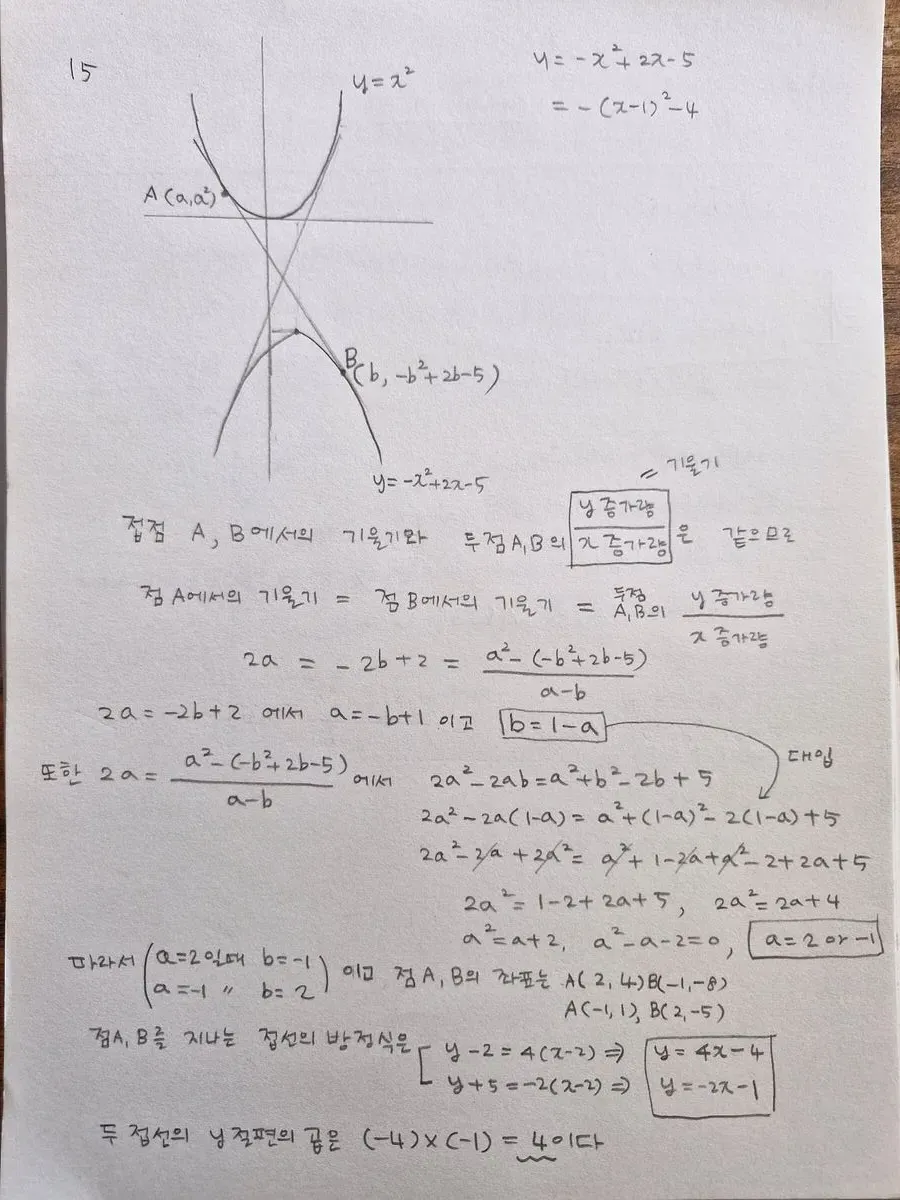 15
y = x²
y = -x² + 2x - 5
= -(x-1)² - 4
A(a, a²)
B(b, -b² + 2b - 5)
y = -x² + 2x - 5
= 기울기
접점 A, B에서의 기울기와 두점 A, B의 y 증가량 / x 증가량 은 같으므로
점 A에서의 기울기 = 점 B에서의 기울기 = 두점 A, B의 y 증가량 / x 증가량
2a = -2b + 2 = a² - (-b² + 2b - 5) / a - b
2a = -2b + 2 에서 a = -b + 1 이고 b = 1 - a
대입
또한 2a = a² - (-b² + 2b - 5) / a - b 에서 2a² - 2ab = a² + b² - 2b + 5
2a² - 2a(1-a) = a² + (1-a)² - 2(1-a) + 5
2a² - 2a + 2a² = a² + 1 - 2a + a² - 2 + 2a + 5
2a² = 1 - 2 + 2a + 5, 2a² = 2a + 4
a² = a + 2, a² - a - 2 = 0, a = 2 or -1
따라서 (a = 2일때 b = -1
a = -1 〃 b = 2) 이고 점 A, B의 좌표는 A(2, 4) B(-1, -8)
A(-1, 1), B(2, -5)
점A, B를 지나는 접선의 방정식은 y - 2 = 4(x-2) ⇒ y = 4x - 4
y + 5 = -2(x-2) ⇒ y = -2x - 1
두 접선의 y절편의 곱은 (-4) × (-1) = 4이다